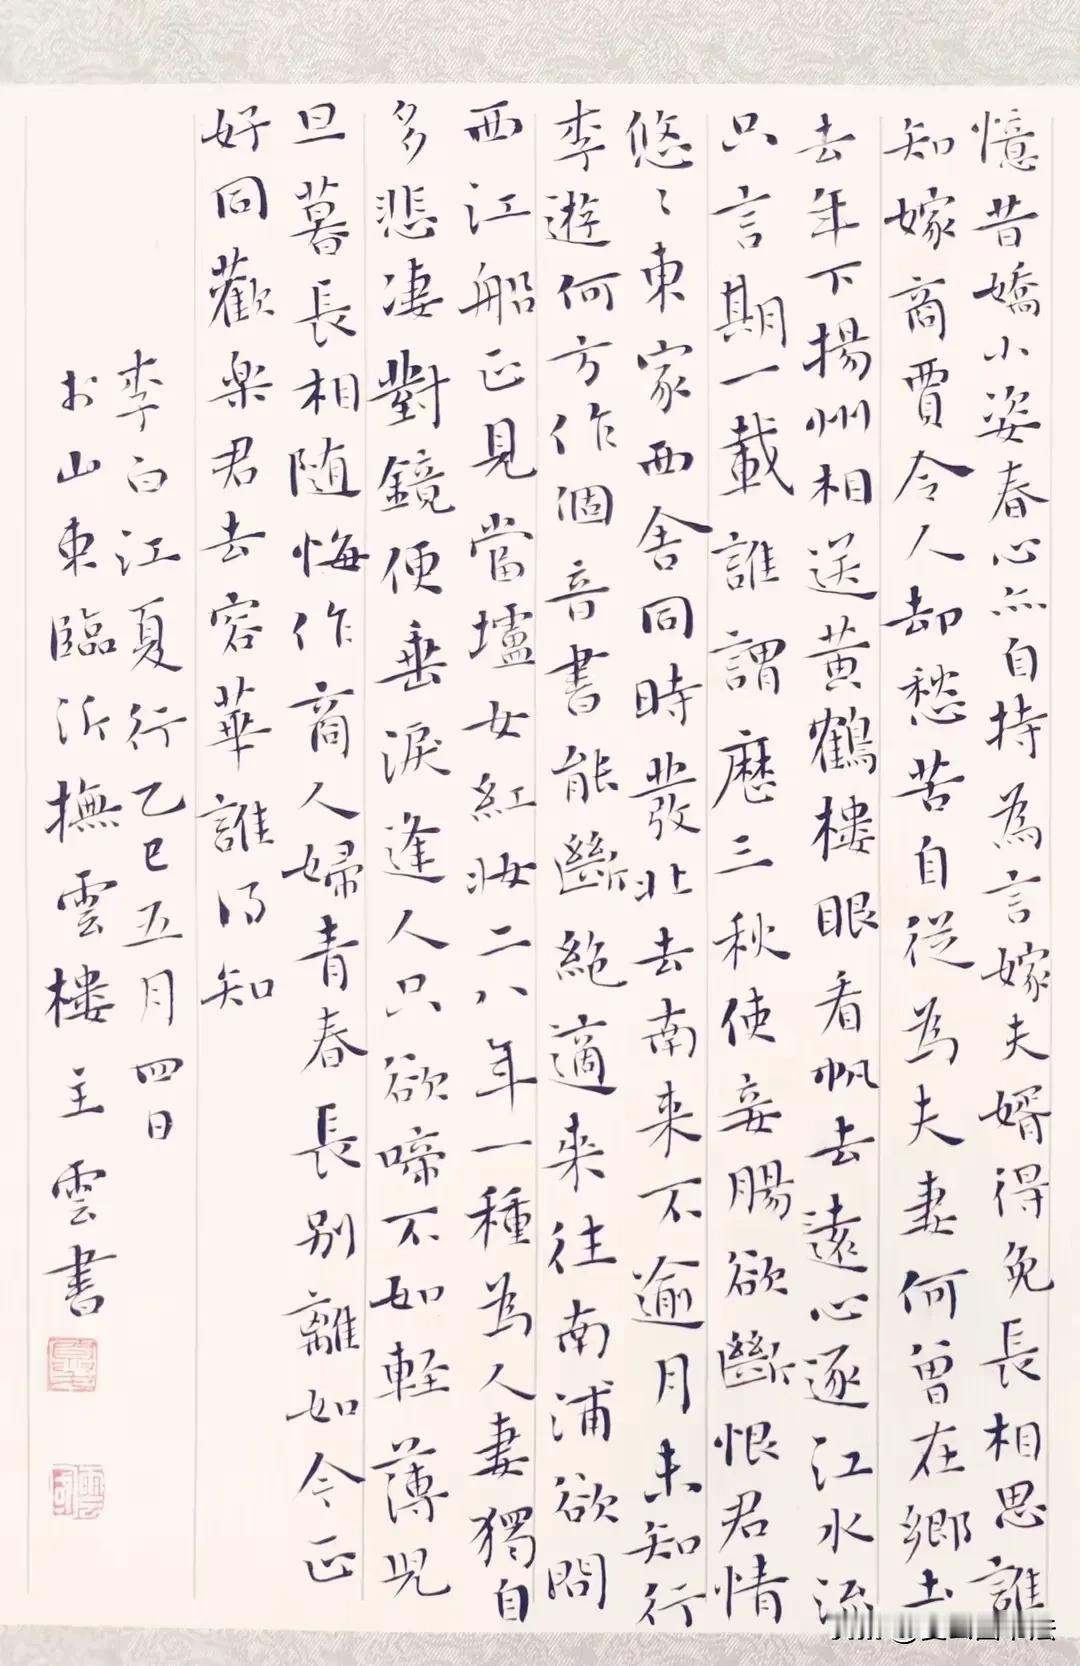 憶昔嬌小姿春心亦自持為言嫁夫婿得免長相思誰
知嫁商賈令人却愁苦自從為夫妻何曾在鄉土
去年下揚州相送黃鶴樓眼看帆去遠心逐江水流
只言期一載誰謂歷三秋使妾腸欲斷恨君情
悠〻東家西舍同時發北去南来不逾月未知行
李遊何方作個音書能斷絶適来往南浦欲問
西江船正見當壚女紅妝二八年一種為人妻獨自
多悲凄對鏡便垂淚逢人只欲啼不如輕薄児
旦暮長相随悔作商人婦青春長別離如今正
好同歡楽君去容華誰得知
李白江夏行乙巳五月四日
於山東臨沂撫雲樓主雲書